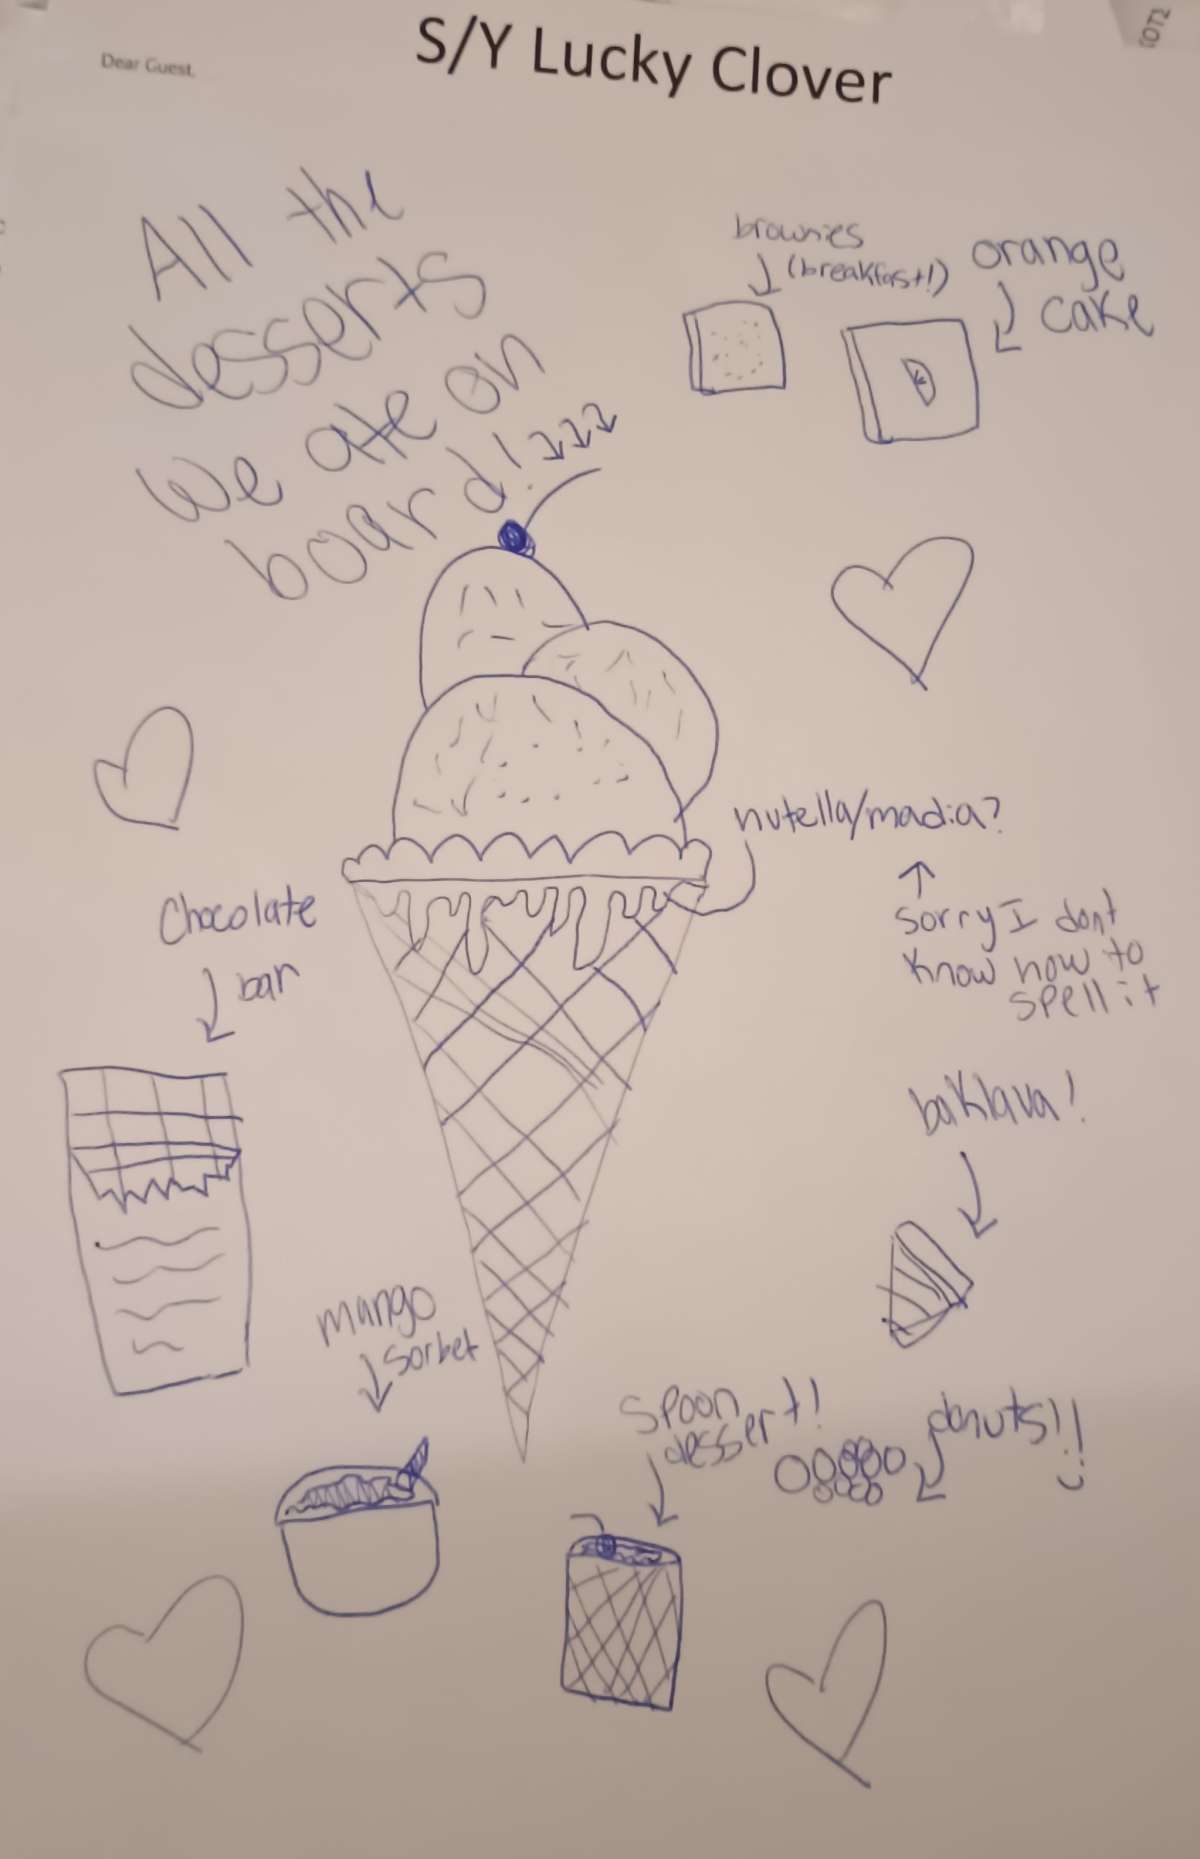 S/Y Lucky Clover
Dear Guest,
All the
desserts
we ate on
board!
brownies
(breakfast!)
orange
cake
nutella/madia?
sorry I dont
know how to
spell it
Chocolate
bar
baklava!
mango
sorbet
spoon
dessert!
donuts!!